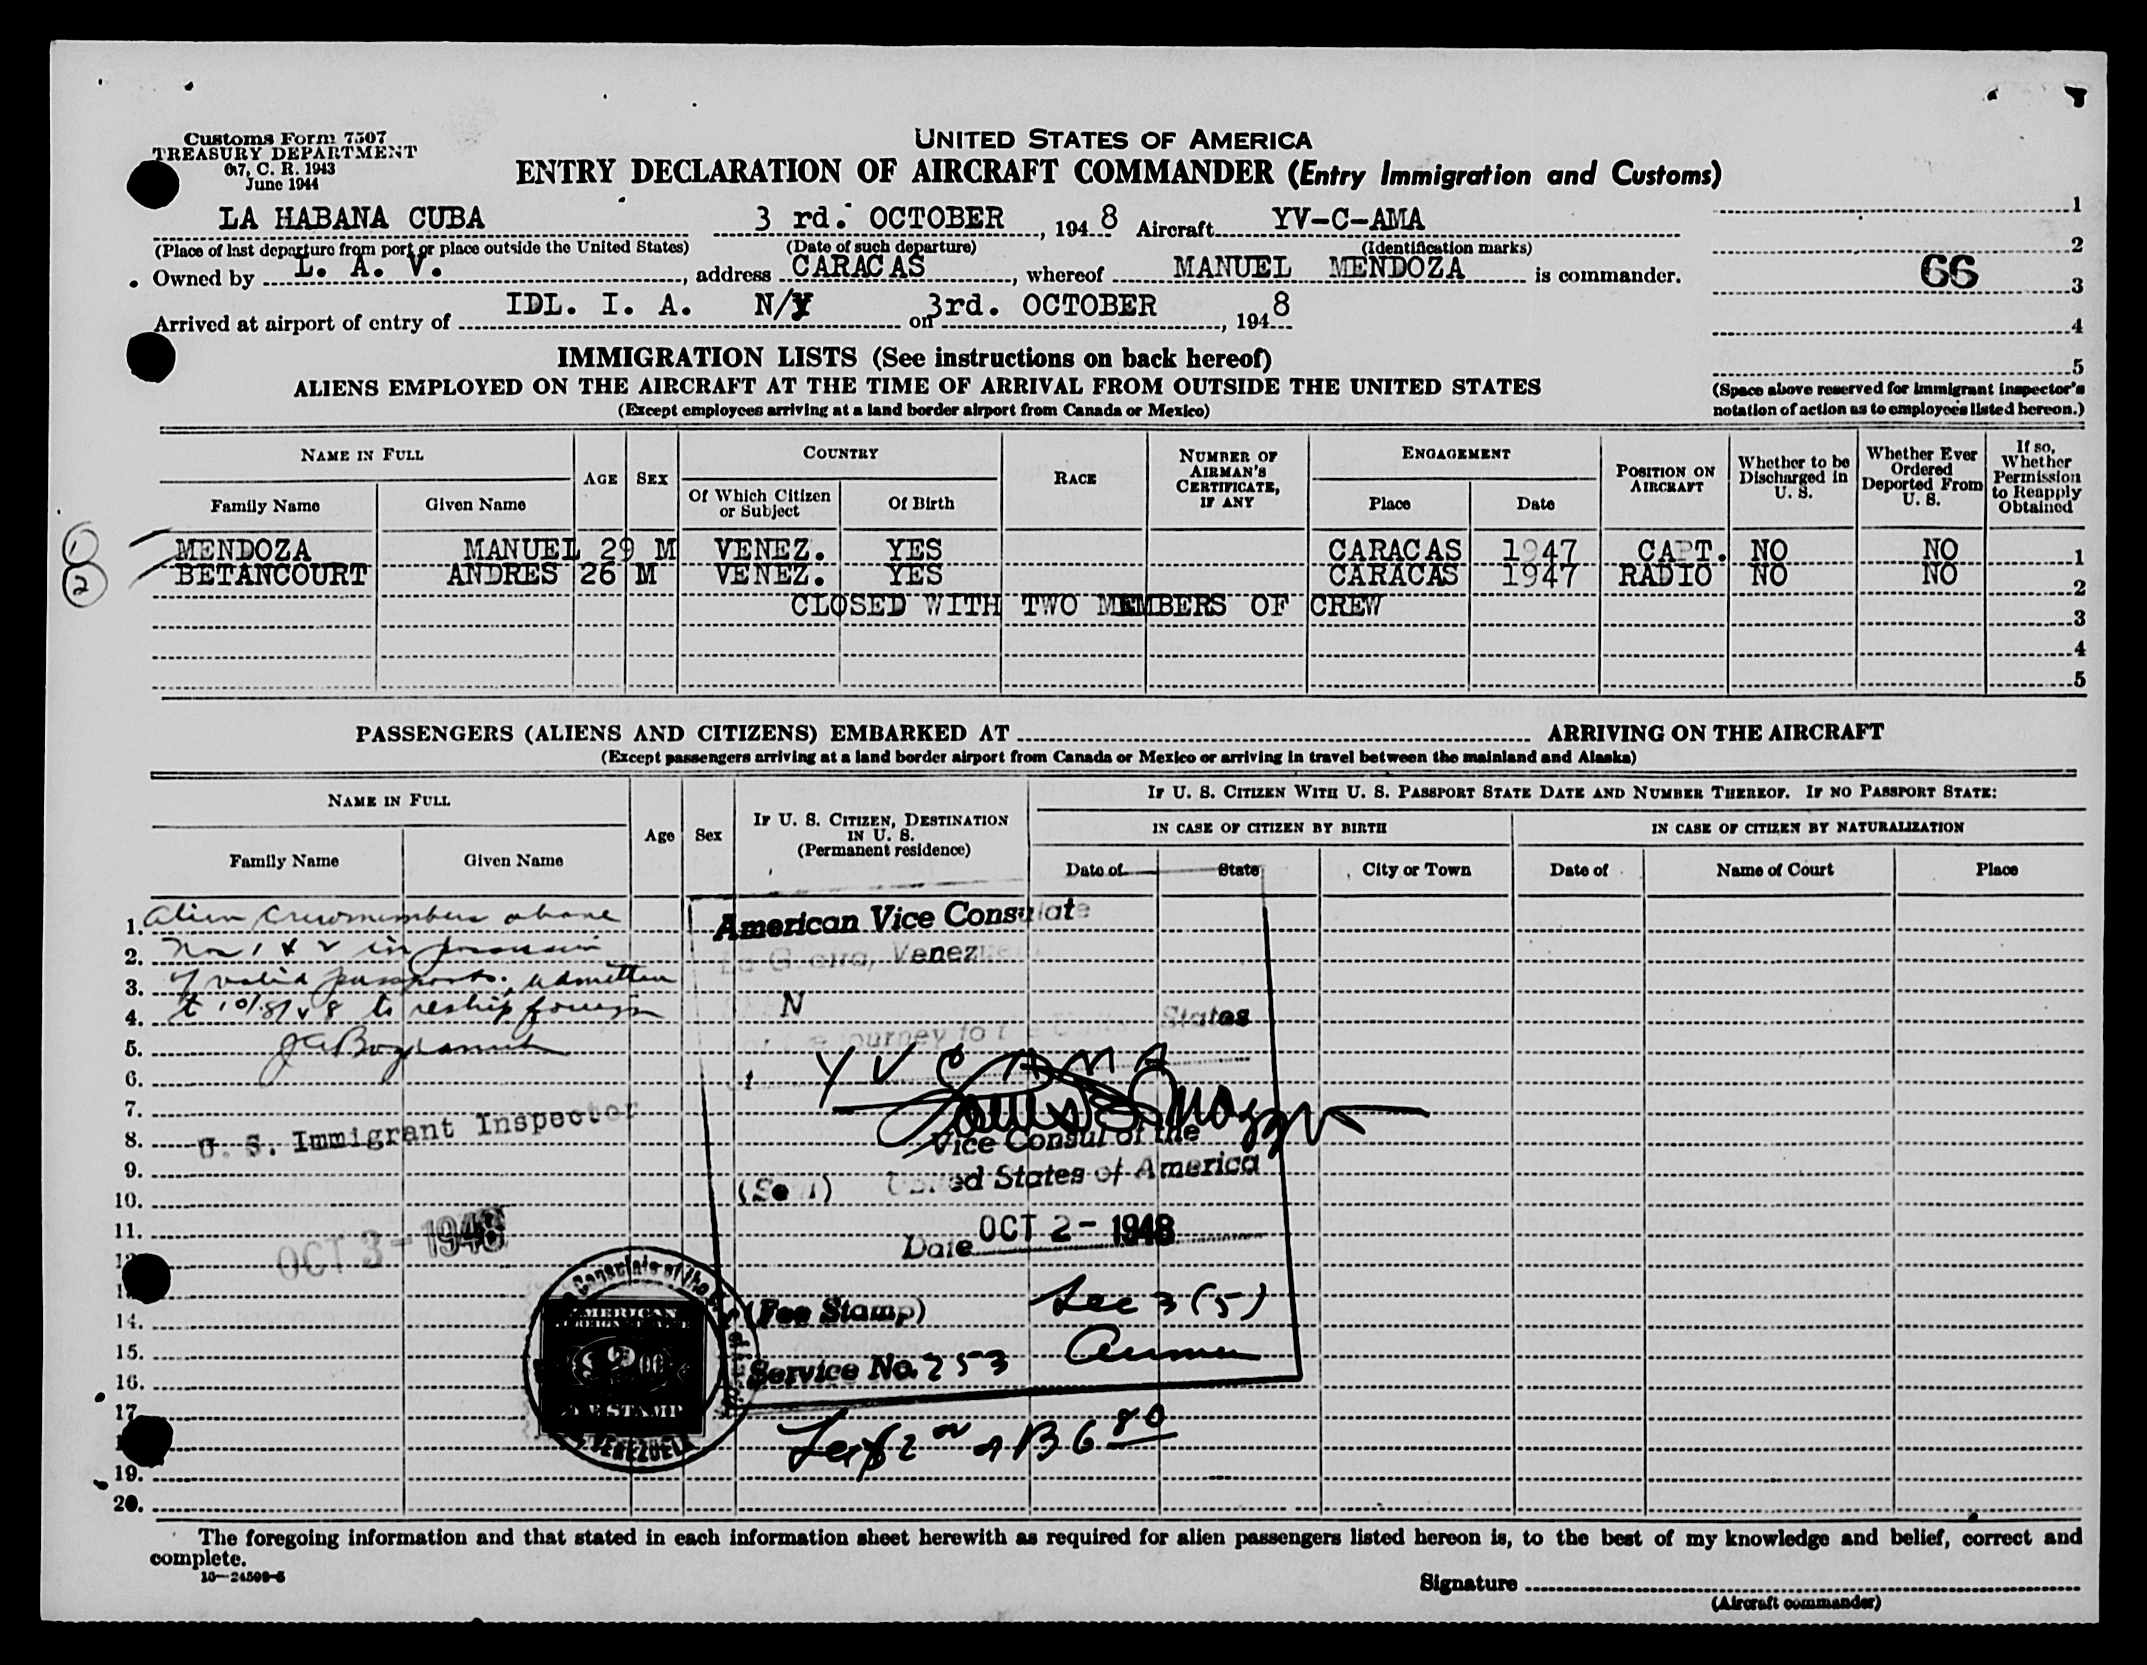 Customs Form 7507
TREASURY DEPARTMENT
C. R. 1943
June 1944
UNITED STATES OF AMERICA
ENTRY DECLARATION OF AIRCRAFT COMMANDER (Entry Immigration and Customs)
LA HABANA CUBA 3 rd. OCTOBER, 1948 Aircraft YV-C-AMA
(Place of last departure from port or place outside the United States) (Date of such departure) (Identification marks)
Owned by L. A. V., address CARACAS, whereof MANUEL MENDOZA is commander.
Arrived at airport of entry of IDL. I. A. N/Y on 3rd. OCTOBER, 1948
1
2
66
3
4
5
(Space above reserved for immigrant inspector's
notation of action as to employees listed hereon.)
IMMIGRATION LISTS (See instructions on back hereof)
ALIENS EMPLOYED ON THE AIRCRAFT AT THE TIME OF ARRIVAL FROM OUTSIDE THE UNITED STATES
(Except employees arriving at a land border airport from Canada or Mexico)
NAME IN FULL
Family Name Given Name
AGE SEX
COUNTRY
Of Which Citizen or Subject Of Birth
RACE
NUMBER OF AIRMAN'S CERTIFICATE, IF ANY
ENGAGEMENT
Place Date
POSITION ON AIRCRAFT
Whether to be Discharged in U. S.
Whether Ever Ordered Deported From U. S.
If so, Whether Permission to Reapply Obtained
1 MENDOZA MANUEL 29 M VENEZ. YES CARACAS 1947 CAPT. NO NO 1
2 BETANCOURT ANDRES 26 M VENEZ. YES CARACAS 1947 RADIO NO NO 2
CLOSED WITH TWO MEMBERS OF CREW 3
4
5
PASSENGERS (ALIENS AND CITIZENS) EMBARKED AT ARRIVING ON THE AIRCRAFT
(Except passengers arriving at a land border airport from Canada or Mexico or arriving in travel between the mainland and Alaska)
NAME IN FULL
Family Name Given Name
Age Sex
IF U. S. CITIZEN, DESTINATION IN U. S. (Permanent residence)
IF U. S. CITIZEN WITH U. S. PASSPORT STATE DATE AND NUMBER THEREOF. IF NO PASSPORT STATE:
IN CASE OF CITIZEN BY BIRTH IN CASE OF CITIZEN BY NATURALIZATION
Date of State City or Town Date of Name of Court Place
1. Alien crewmembers above
2. Nos 1 & 2 in possession
3. of valid passports; admitted
4. to reship foreign
5.
6.
7.
8. U. S. Immigrant Inspector
9.
10.
11.
OCT 3 - 1948
14.
15.
16.
17.
19.
20.
American Vice Consulate
La Guaira, Venezuela
N
journey to the United States
Y V C A M A
Vice Consul of the
United States of America
(Seal)
Date OCT 2 - 1948
(Fee Stamp) Sec 3 (5)
Service No. 253
AMERICAN
FOREIGN SERVICE
$2.00
FEE STAMP
Consulate of the
VENEZUELA
The foregoing information and that stated in each information sheet herewith as required for alien passengers listed hereon is, to the best of my knowledge and belief, correct and
complete.
Signature
(Aircraft commander)